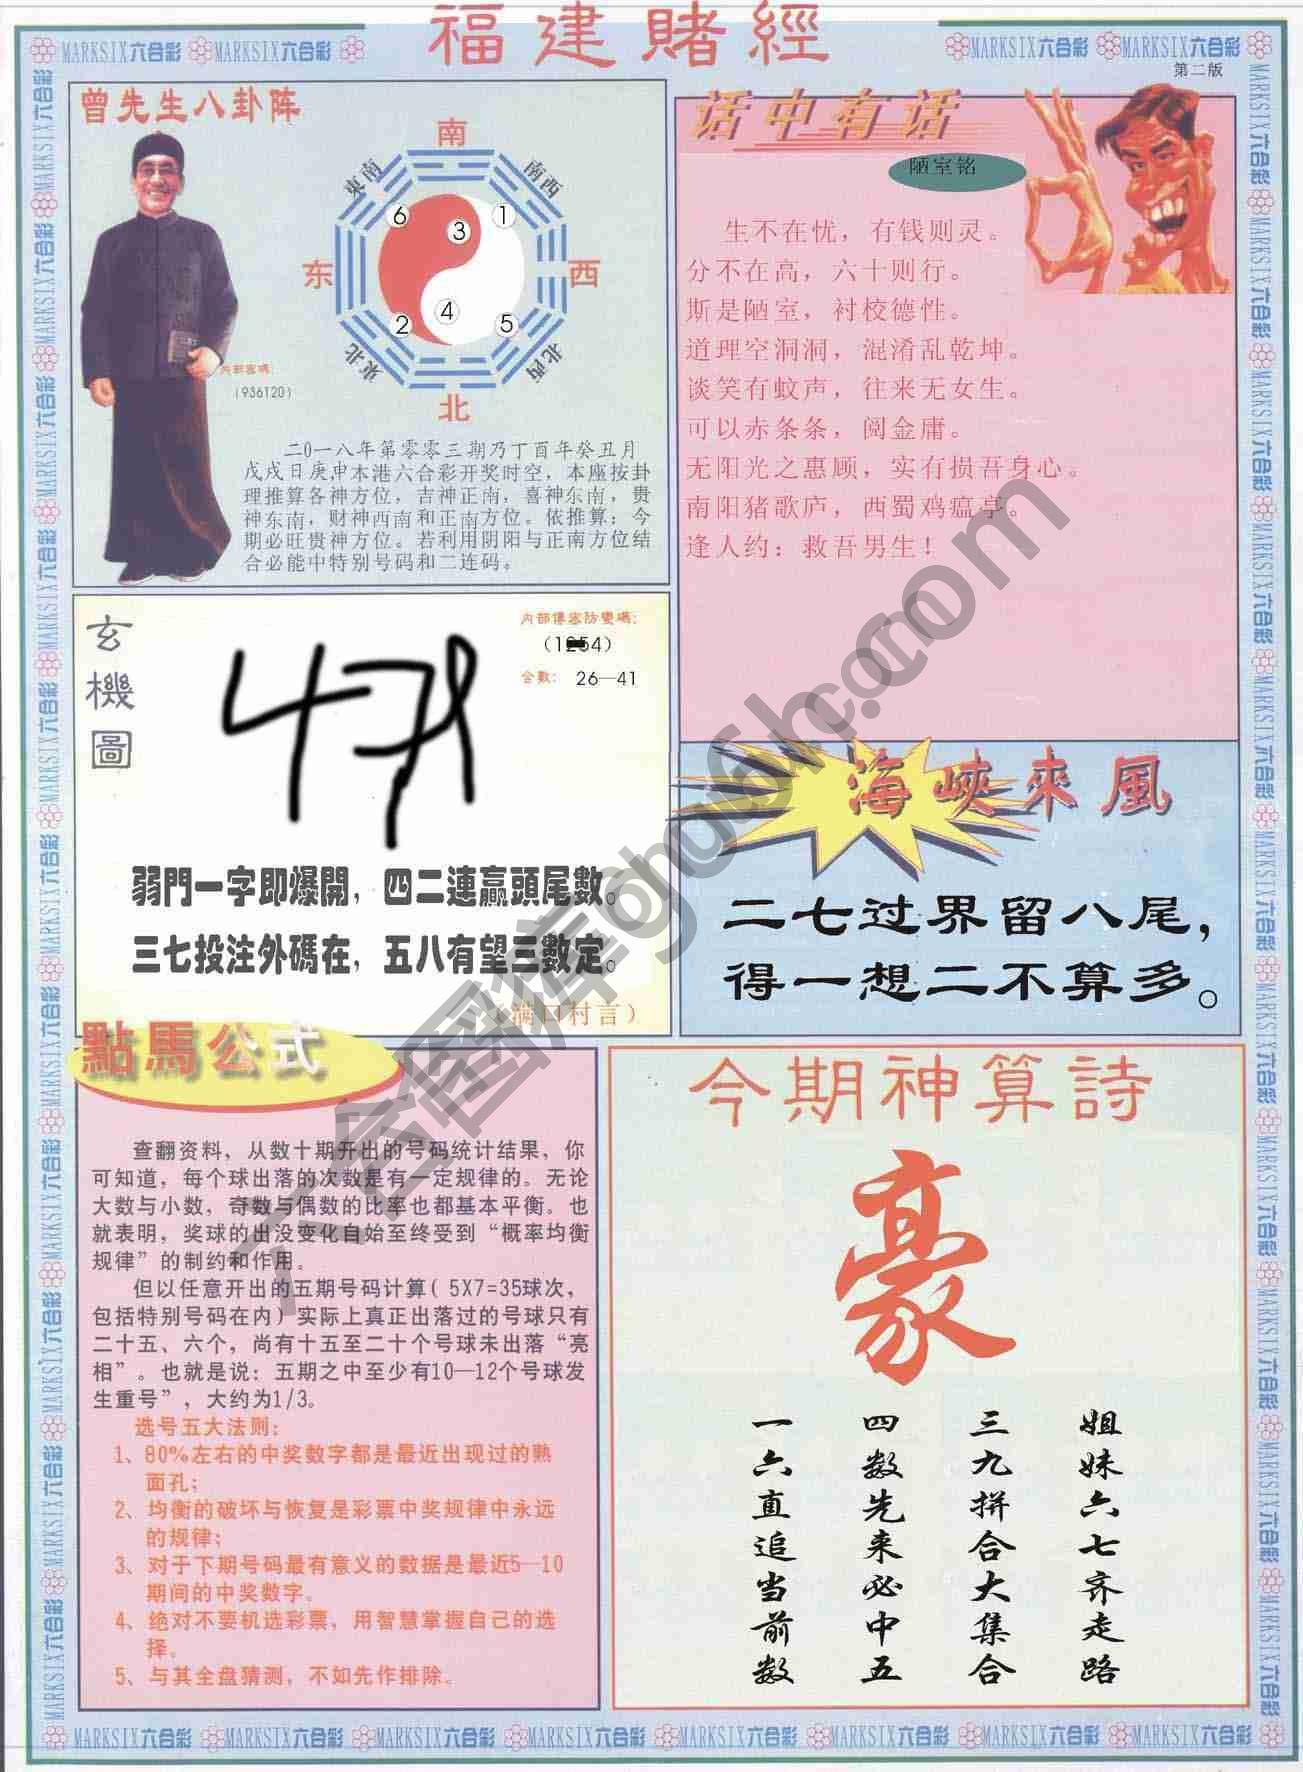 福建賭經
MARKSIX六合彩 MARKSIX六合彩 MARKSIX六合彩 MARKSIX六合彩
第二版
曾先生八卦阵
南
東南
南西
6
3
1
东
西
4
2
5
東北
北西
北
内部密碼:
(936120)
二0一八年第零零三期乃丁酉年癸丑月
戊戌日庚申本港六合彩开奖时空，本座按卦
理推算各神方位，吉神正南，喜神东南，贵
神东南，财神西南和正南方位。依推算：今
期必旺贵神方位。若利用阴阳与正南方位结
合必能中特别号码和二连码。
话中有话
陋室铭
生不在忧，有钱则灵。
分不在高，六十则行。
斯是陋室，衬校德性。
道理空洞洞，混淆乱乾坤。
谈笑有蚊声，往来无女生。
可以赤条条，阅金庸。
无阳光之惠顾，实有损吾身心。
南阳猪歌庐，西蜀鸡瘟亭。
逢人约：救吾男生！
玄機圖
内部傳密防變碼:
合數: 26—41
弱門一字即爆開，四二連贏頭尾數。
三七投注外碼在，五八有望三數定。
（满口村言）
海峽來風
二七过界留八尾，
得一想二不算多。
點馬公式
查翻资料，从数十期开出的号码统计结果，你
可知道，每个球出落的次数是有一定规律的。无论
大数与小数，奇数与偶数的比率也都基本平衡。也
就表明，奖球的出没变化自始至终受到“概率均衡
规律”的制约和作用。
但以任意开出的五期号码计算( 5X7=35球次，
包括特别号码在内) 实际上真正出落过的号球只有
二十五、六个，尚有十五至二十个号球未出落“亮
相”。也就是说：五期之中至少有10—12个号球发
生重号”，大约为1/3。
选号五大法则:
1、80%左右的中奖数字都是最近出现过的熟
面孔;
2、均衡的破坏与恢复是彩票中奖规律中永远
的规律;
3、对于下期号码最有意义的数据是最近5—10
期间的中奖数字。
4、绝对不要机选彩票，用智慧掌握自己的选
择。
5、与其全盘猜测，不如先作排除。
今期神算詩
豪
姐妹六七齐走路
三九拼合大集合
四数先来必中五
一六直追当前数